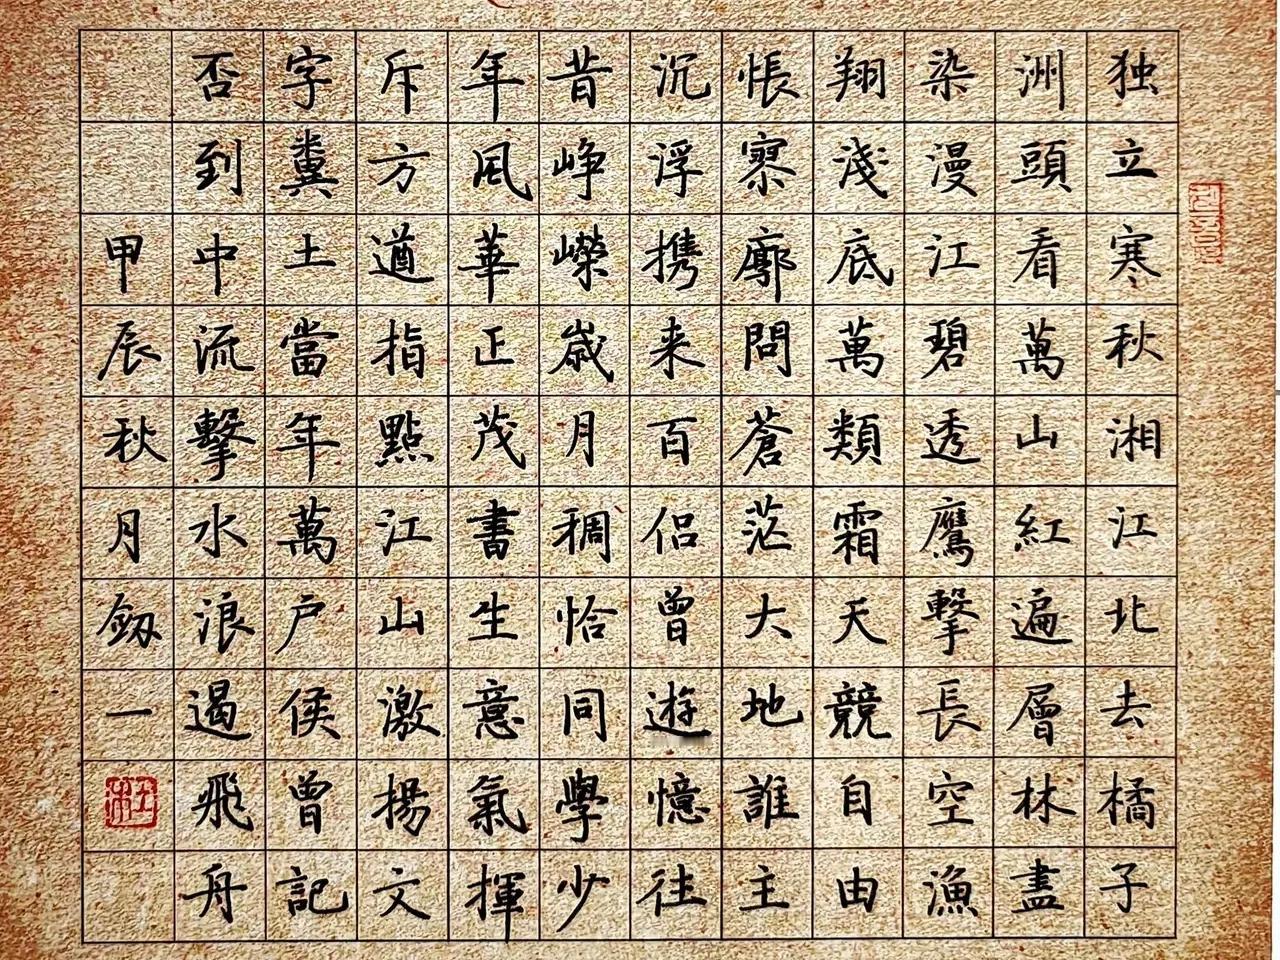 独立寒秋湘江北去橘子
洲頭看萬山紅遍層林盡
染漫江碧透鷹擊長空漁
翔淺底萬類霜天競自由
悵寥廓問蒼茫大地誰主
沉浮携来百侣曾遊憶往
昔峥嶸歲月稠恰同學少
年風華正茂書生意氣揮
斥方遒指點江山激揚文
字糞土當年萬户侯曾記
否到中流擊水浪遏飛舟
甲辰秋月釼一